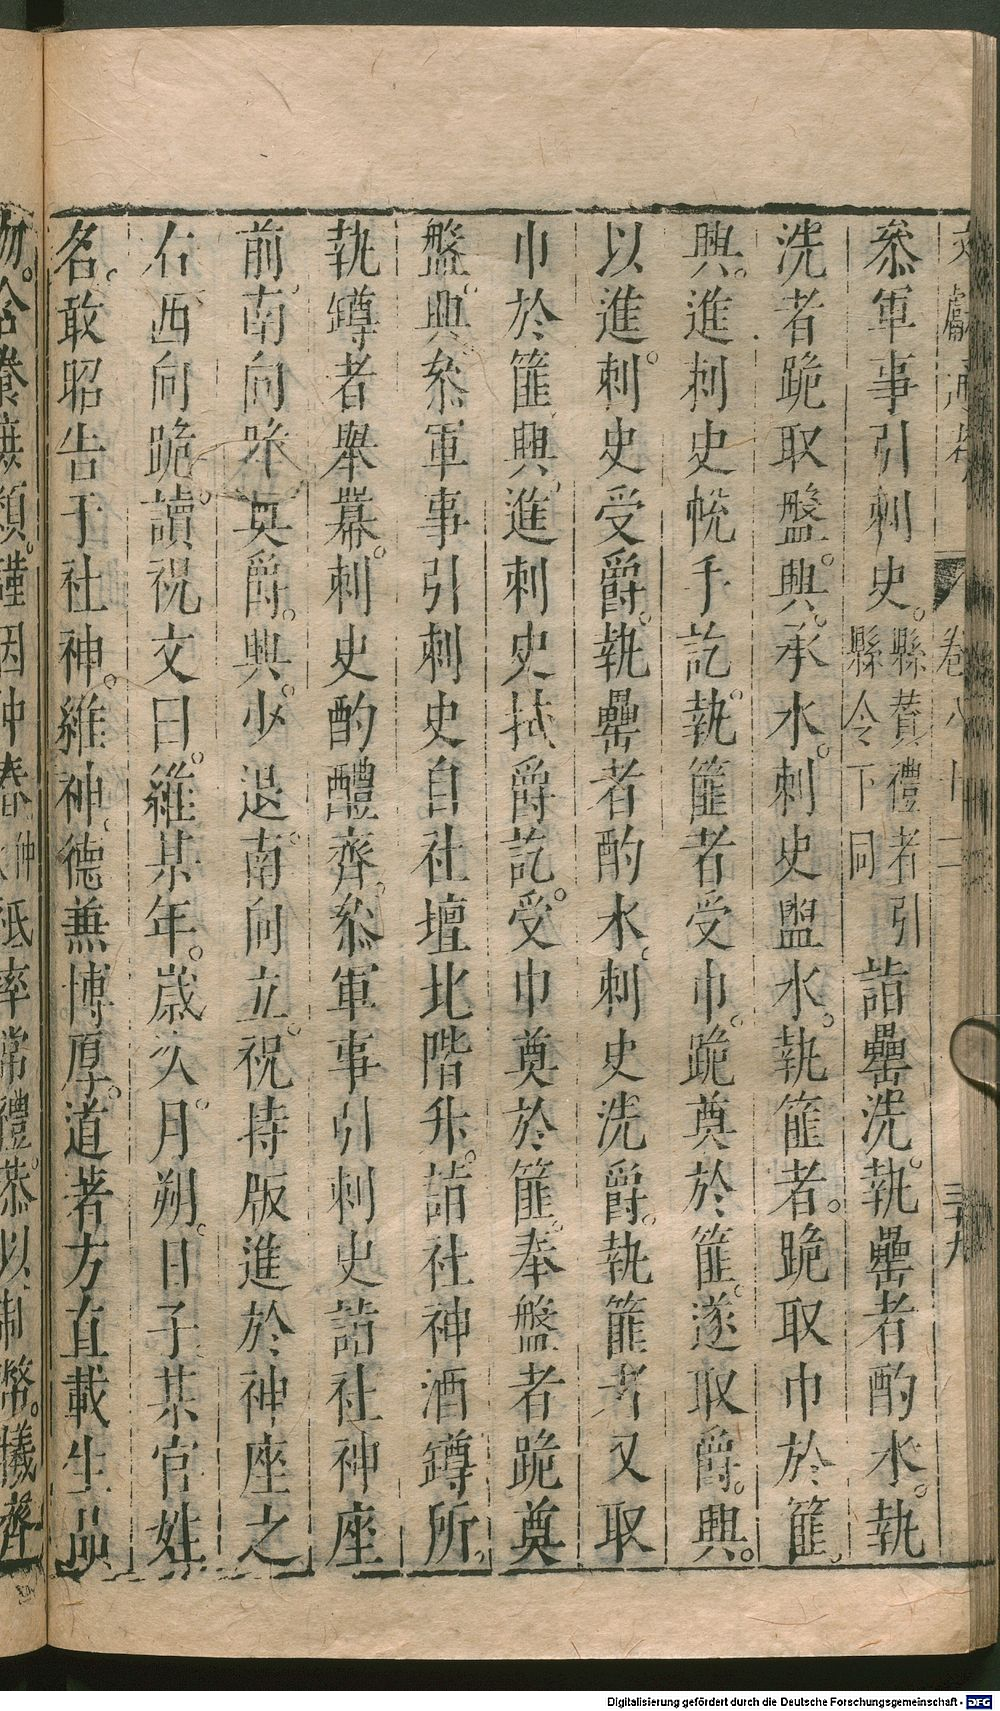 文獻通考 卷八十二 三十九
叅軍事引刺史。縣贊禮者引縣令下同詣罍洗。執罍者酌水。執
洗者跪取盤。興。承水。刺史盥水。執篚者。跪取巾於篚。
興。進刺史帨手訖。執篚者受巾。跪奠於篚。遂取爵。興。
以進。刺史受爵。執罍者酌水。刺史洗爵。執篚者又取
巾於篚興。進刺史拭爵訖。受巾奠於篚。奉盤者跪奠
盤。興。叅軍事引刺史自社壇北階升。詣社神酒罇所。
執罇者舉冪。刺史酌醴齊。叅軍事引刺史詣社神座
前。南向跪奠爵。興。少退。南向立。祝持版進於神座之
右西向跪。讀祝文曰。維某年。歲次月。朔。日子某官姓
名。敢昭告于社神。維神。德兼博厚。道著方直載生品
物。含養庶類。謹因仲春仲祗率常禮。恭以制幣。犧齊
Digitalisierung gefördert durch die Deutsche Forschungsgemeinschaft - DFG